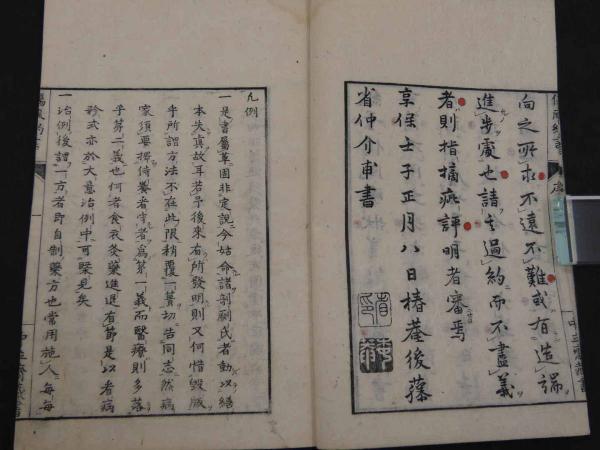 向之所求不遠不難或有造端
進步處也請之過約而不盡義
者則指摘疵評明者審焉
享保壬子正月八日椿菴後藤
省仲介甫書
凡例
一是書屬草固非定說今姑命諸剞劂氏者動以繕
本失真故耳若予後來有所發明則又何惜毀版
乎所謂方法不在此限稍覆一簣切告同志然病
家須要擇侍養者守者爲第一義而醫療則多落
乎第二義也何者食灸藥進退有節是以看病
診式亦於大意治例中可槩見矣
一治例後謂一方者昂自制藥方也常用施人每每